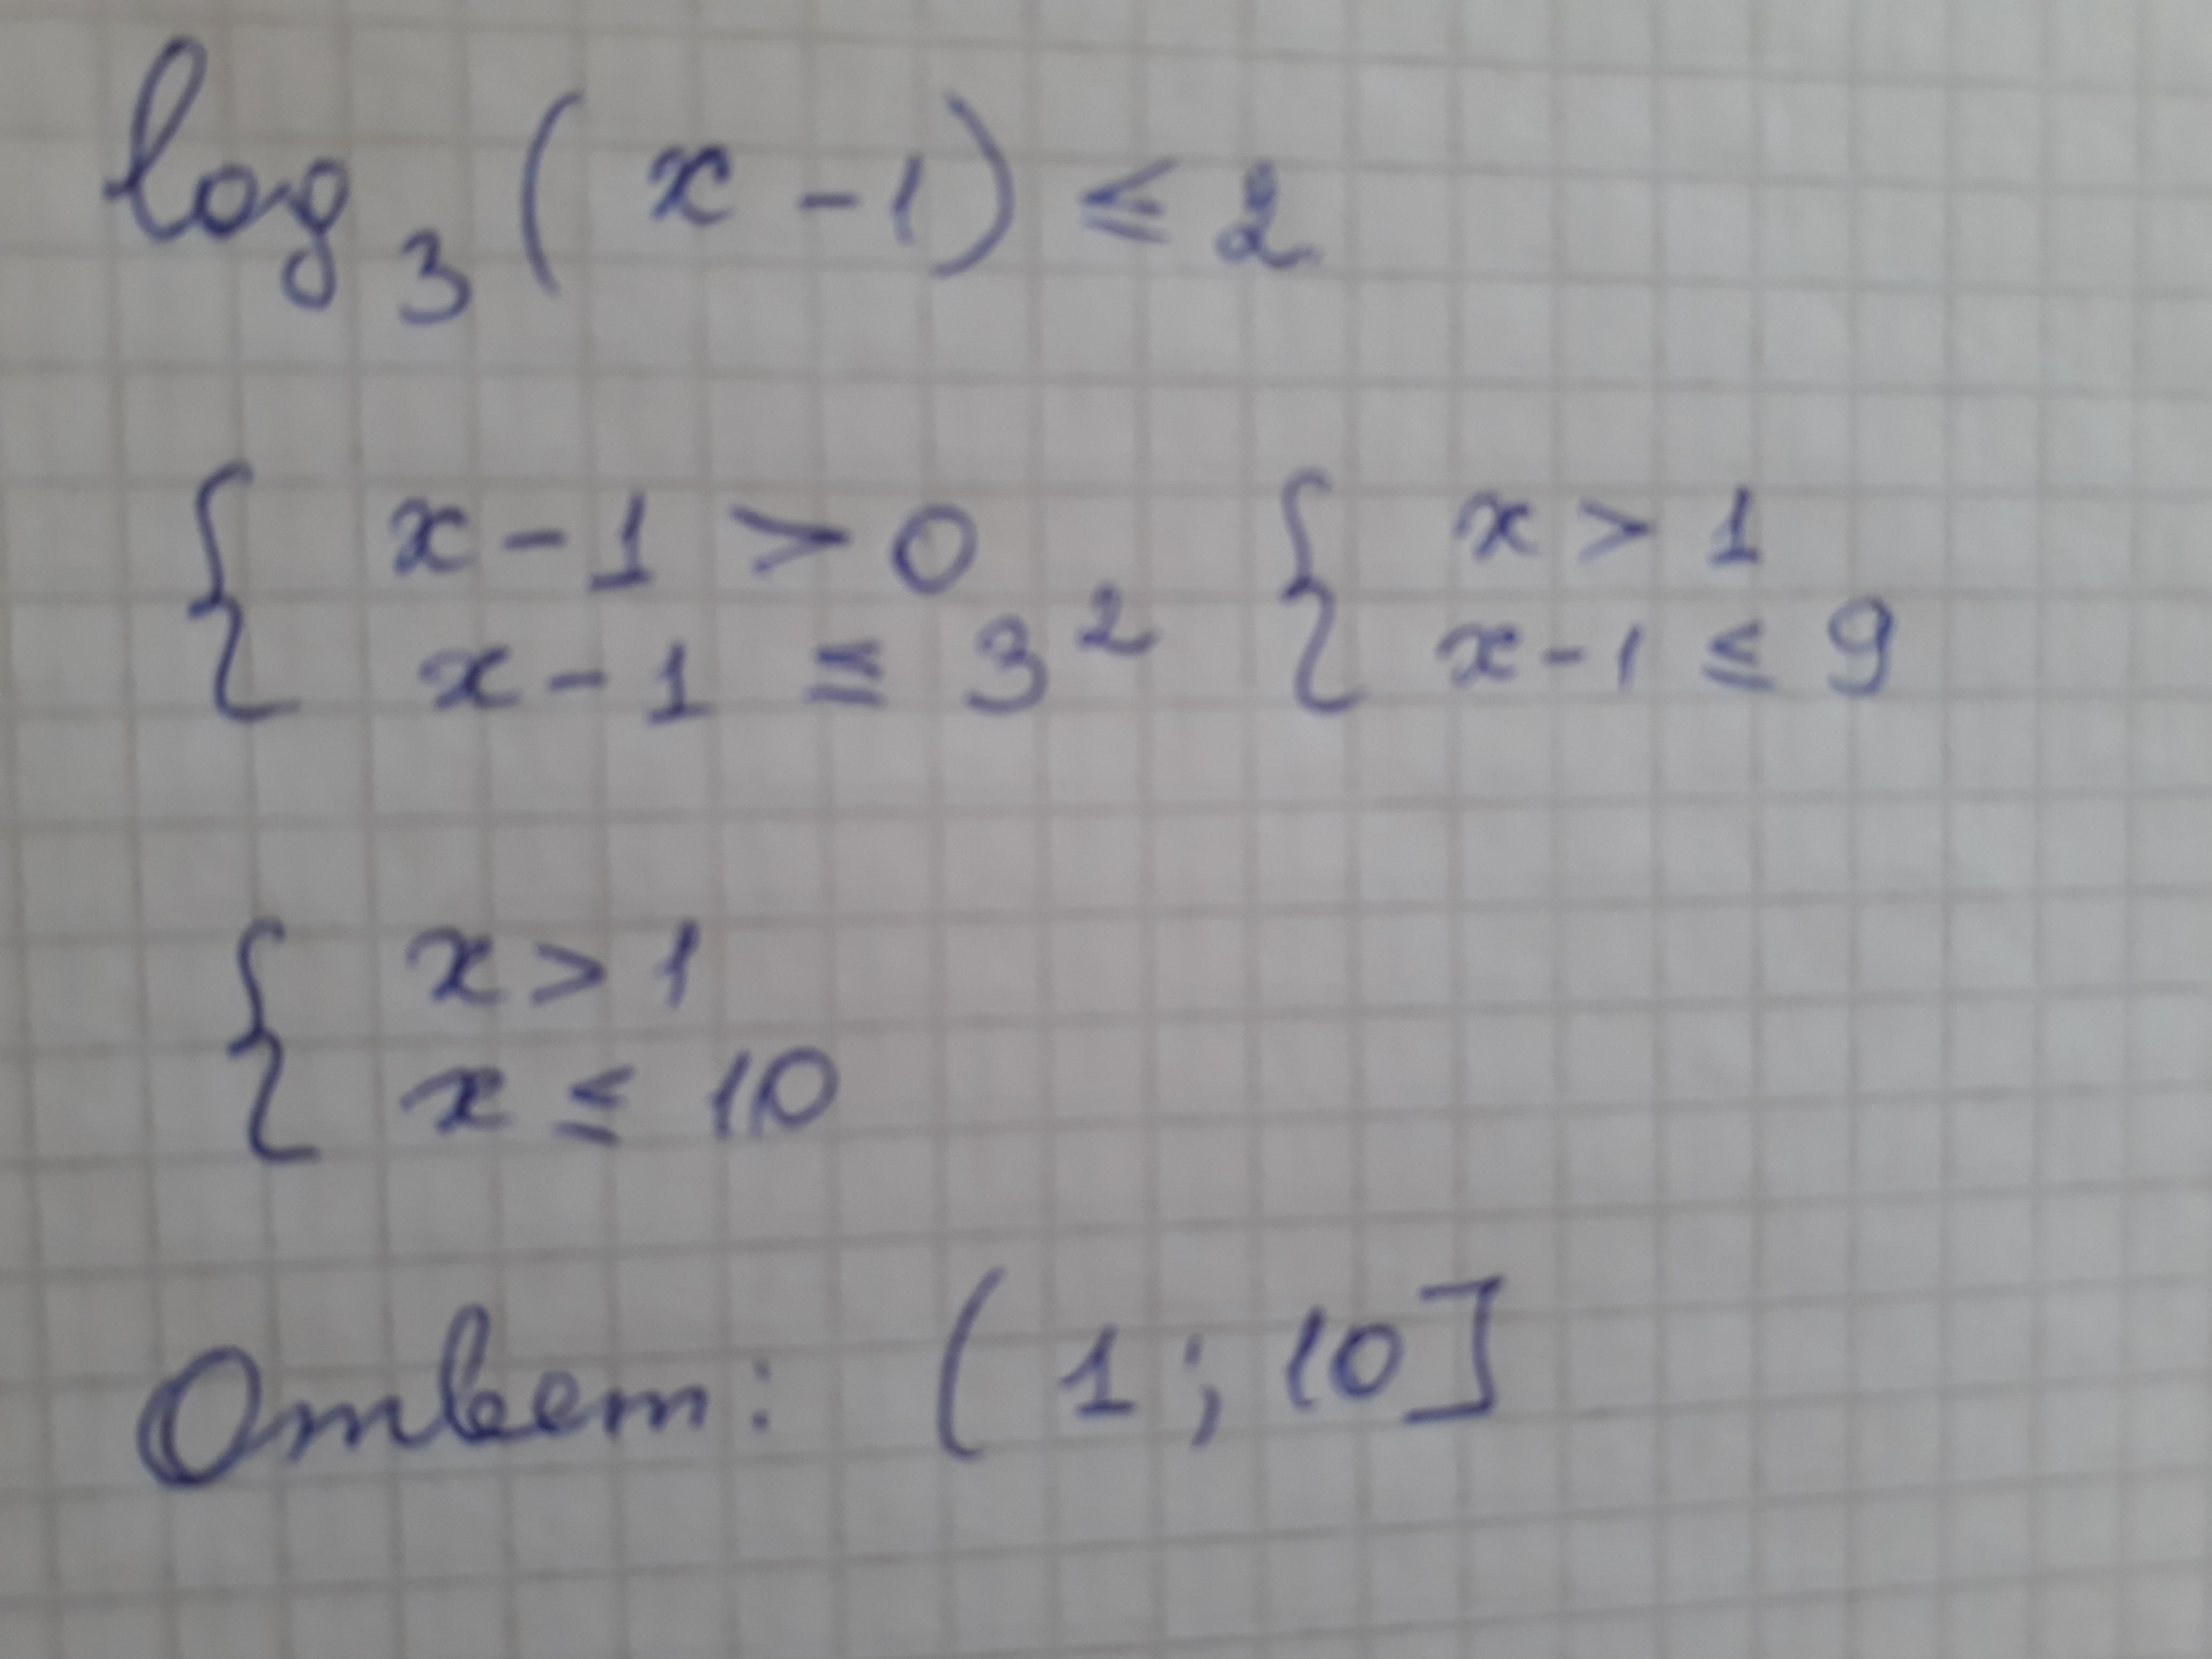 log₃(x - 1) ≤ 2
{ x - 1 > 0 { x > 1
x - 1 ≤ 3² x - 1 ≤ 9
{ x > 1
x ≤ 10
Ответ: (1; 10]